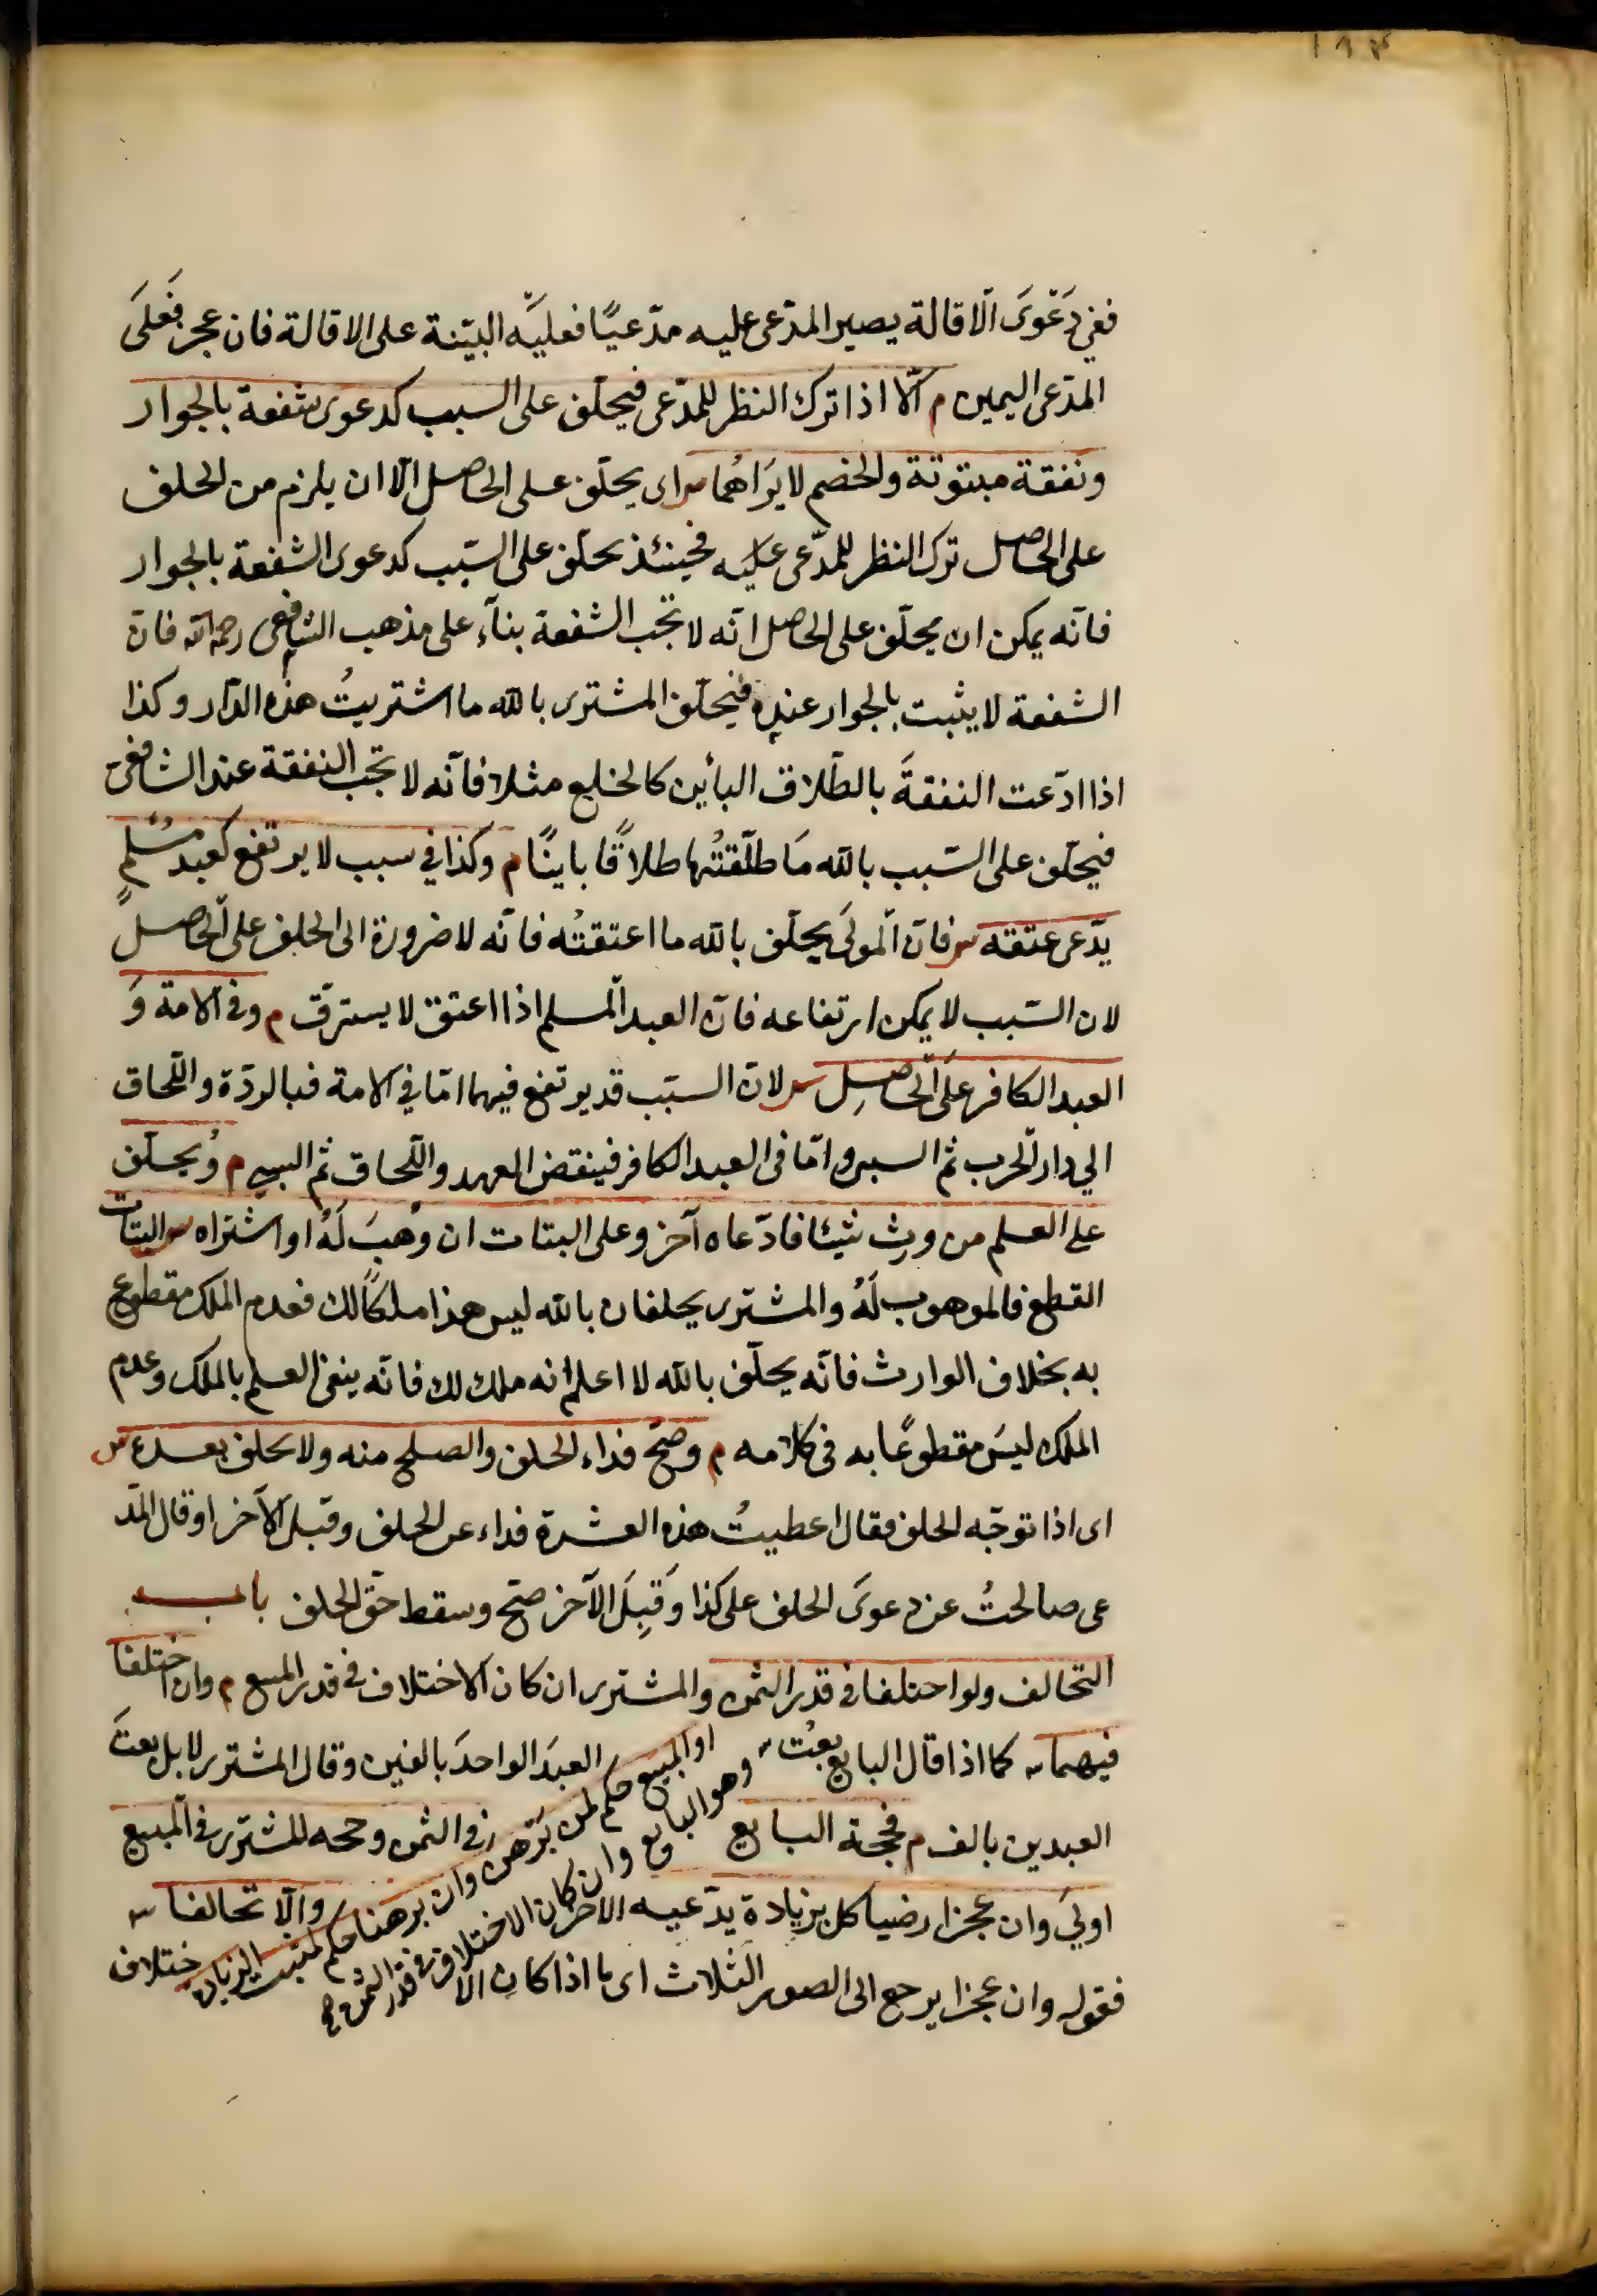 ففي دَعْوَى الاقالة يصير المدّعى عليه مدّعيًا فعليّه البيّنة على الاقالة فان عجز فَعلَى
المدّعى اليمين م الّا اذا ترك النظر للمدّعى فيحلّف على السبب كدعوى شفعة بالجوار
ونفقة مبتوتة والخصم لا يَرَاهُما س اى يحلّف على الحاصل الّا ان يلزم من الحلف
على الحاصل ترك النظر للمدّعى عليه فحينئذ يحلّف على السّبب كدعوى الشفعة بالجوار
فانّه يمكن ان يحلّف على الحاصل انّه لا تجب الشفعة بناءً على مذهب الشافعى رحمه الله فانّ
الشفعة لا يثبت بالجوار عنده فيحلّف المشترى بالله ما اشتريتُ هذه الدّار وكذا
اذا ادّعت النفقةَ بالطّلاق البأين كالخلع مثلا فانّه لا تجب النفقة عند الشافعى
فيحلّف على السّبب بالله مَا طلّقتُها طلاقًا باينًا م وكذا في سبب لا يرتفع كعبدٍ مُسْلمٍ
يدّعى عتقه س فانّ المولَى يحلّف بالله ما اعتقتُه فانّه لا ضرورة الى الحلف على الحاصل
لان السّبب لا يمكن ارتفاعه فانّ العبد المسلم اذا اعتق لا يسترقّ م وفى الامة وَ
العبد الكافر علَى الحَاصِلِ س لانّ السبّب قد يرتفع فيهما امّا في الامة فبالردّة واللّحاق
الي دار الحرب ثم السبى وامّا فى العبد الكافر فينقض العهد واللّحاق ثم السبي م وُيحلّف
على العلم من ورِث شيئا فادّعاه آخر وعلى البتات ان وُهبَ لَهُ او اشتراه س البتات
القطع فالموهوب لَهُ والمشترى يحلفان بالله ليس هذا ملكًا لك فعدم الملك مقطوع
به بخلاف الوارث فانّه يحلّف بالله لا اعلم انه ملك لك فانّه ينفى العلم بالملك وعدم
الملك ليسَ مقطوعًا به فى كلامه م وصحّ فداء الحلف والصلح منه ولا يحلف بعده س
اى اذا توجّه الحلف فقال اعطيتُ هذه العشرة فداء عن الحلف وقبلَ الآخر او قال المدّ
عى صالحتُ عن دعوَى الحلف على كذا وَقَبِلَ الآخر صحّ وسقط حقّ الحلف باب
التحالف ولو اختلفا فى قدر الثمن والمشترى ان كان الاختلاف فى قدر المبيع م وان اختلفا
فيهما س كما اذا قال البايع بعْت العبدَ الواحدَ بالفين وقال المشترى لا بل بعتَ
العبدين بالف م فحجة البايع فى الثمن وحجه المشترى فى المبيع
اولَى وان عجزا رضيا كل بزيادة يدّعيه الاخر والّا تحالفا س
فقوله وان عجزا يرجع الى الصور الثلاث اى ما اذا كان الاختلاف
او المبيع حكم لمن بَرْهن وان برهنا حكم لمثبت الزيادة
وهو البايع وان كان الاختلاف فى قدر الثمن